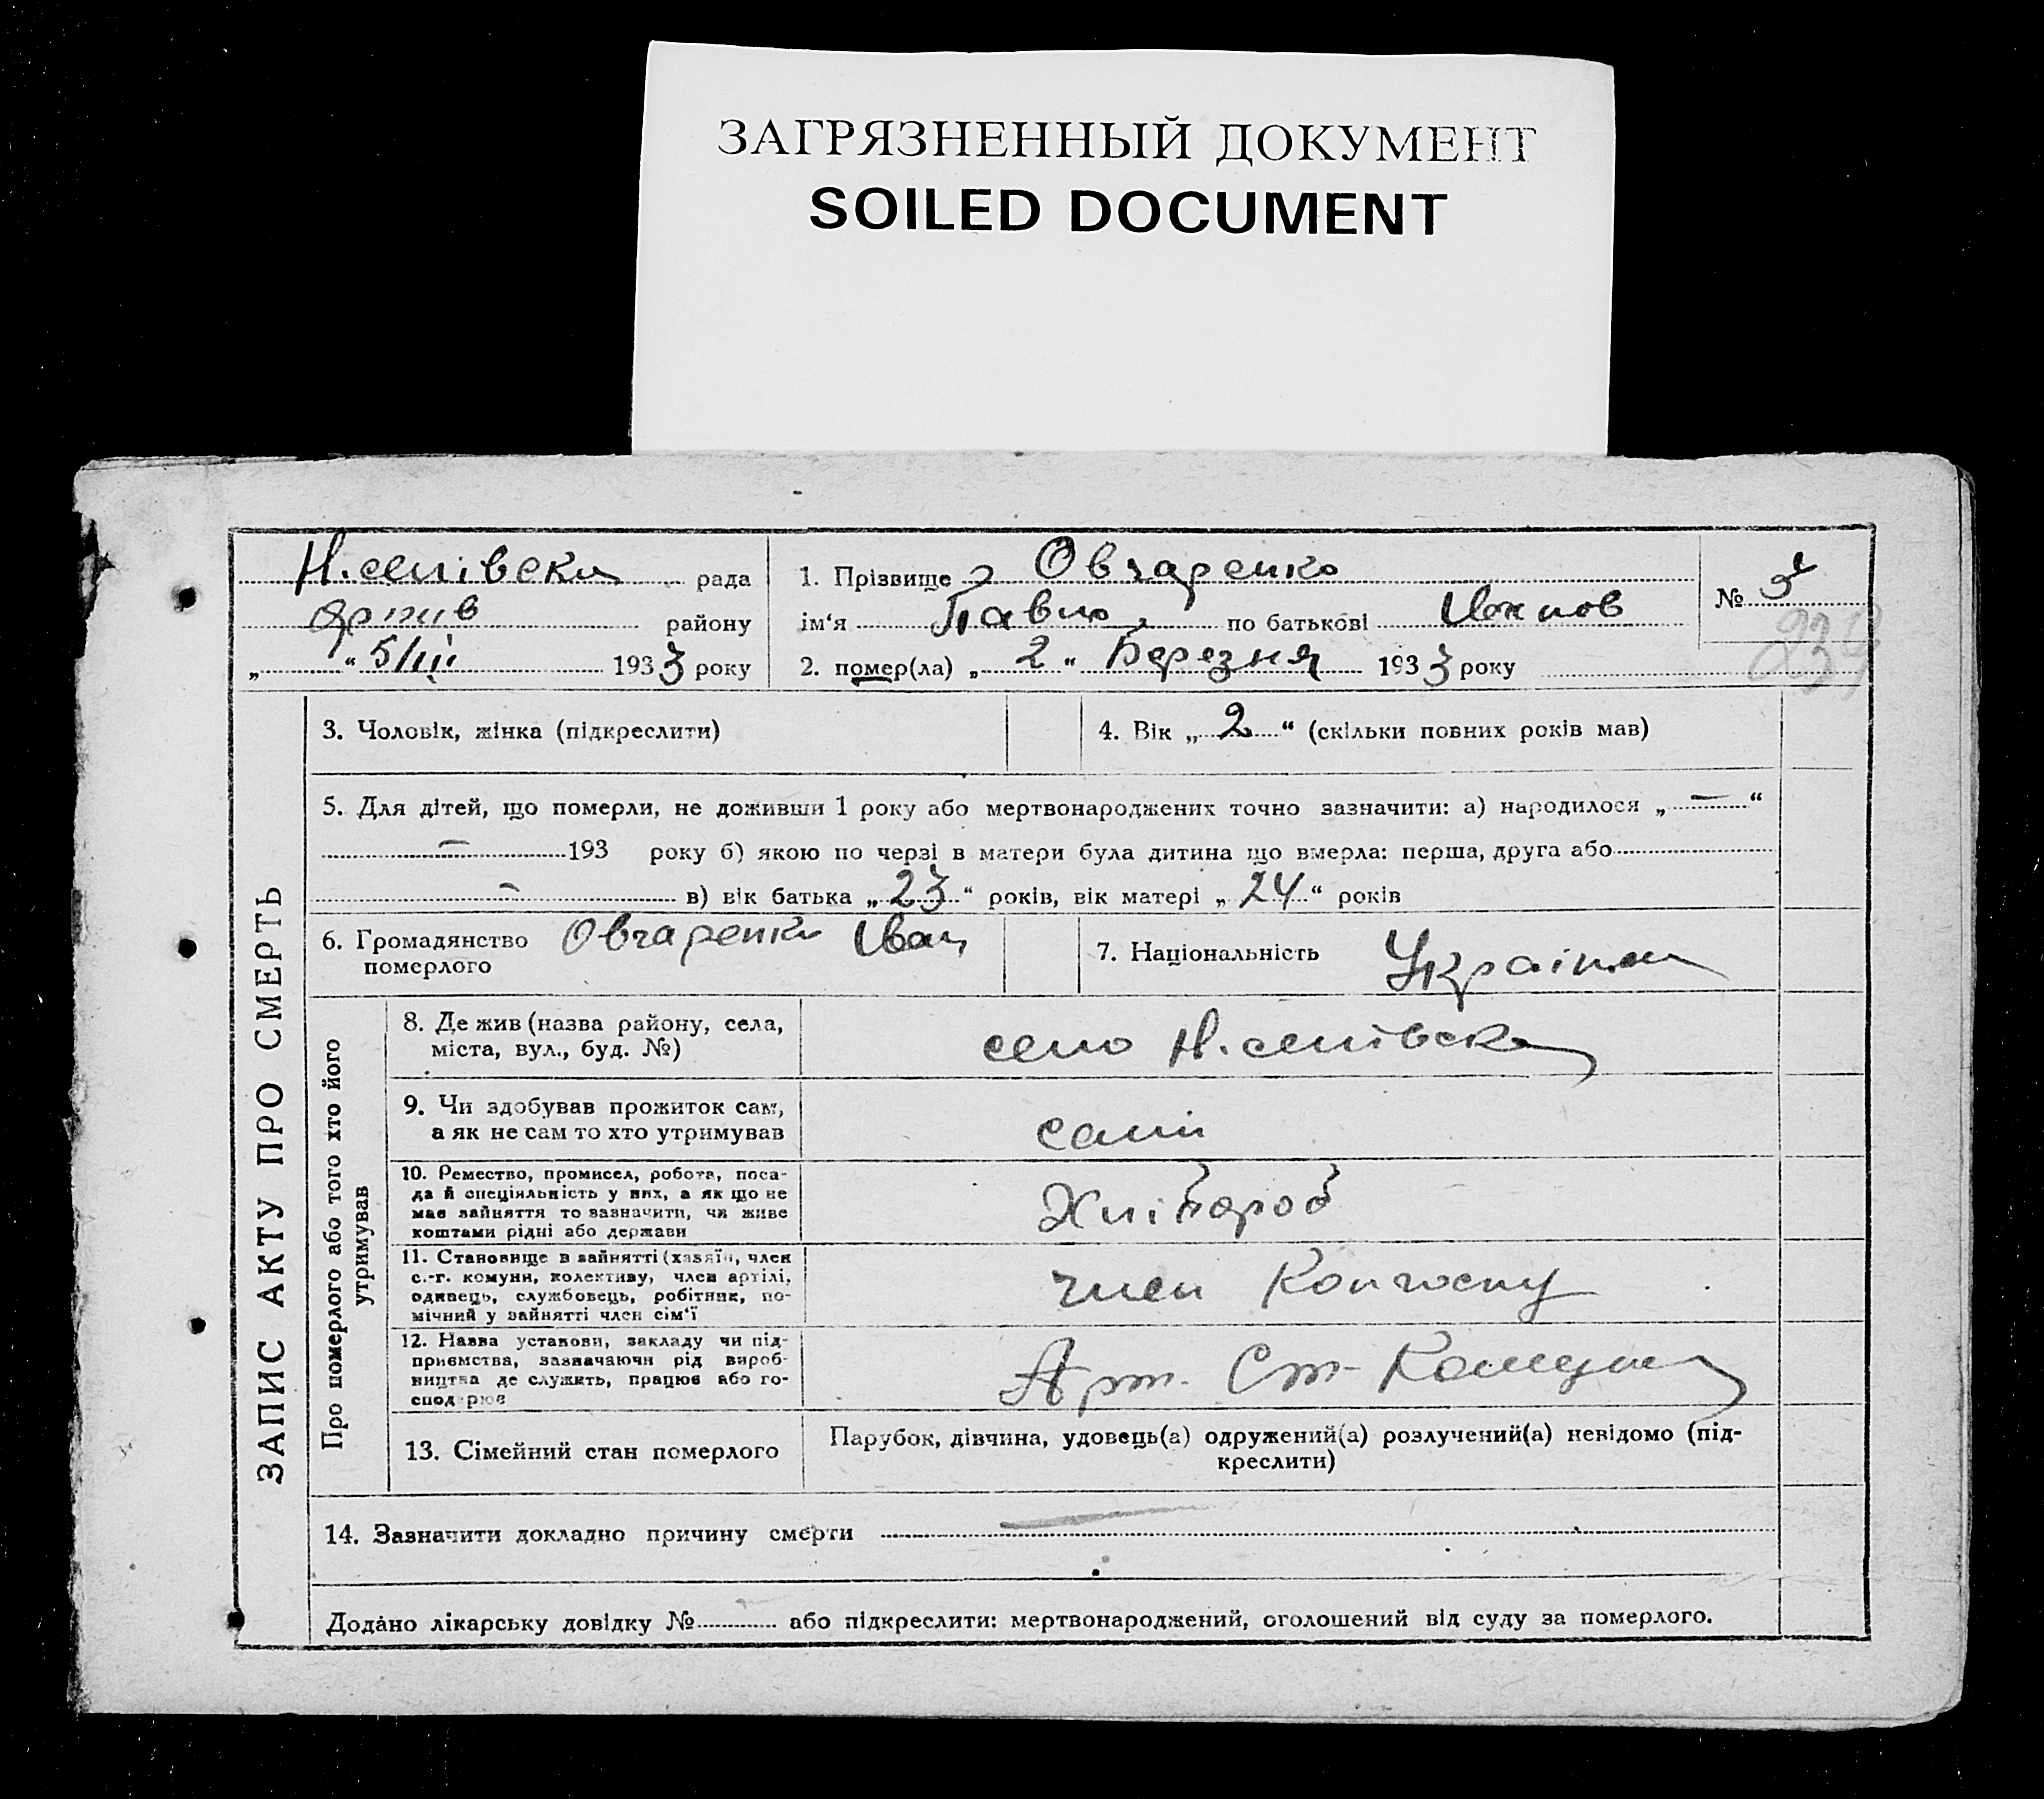 ЗАГРЯЗНЕННЫЙ ДОКУМЕНТ
SOILED DOCUMENT
рада
району
„ “ 5/III 1933 року
1. Прізвище Овчаренко
ім‘я Павло по батькові
2. помер(ла) „ 2 “ Березня 1933 року
№
ЗАПИС АКТУ ПРО СМЕРТЬ
3. Чоловік, жінка (підкреслити)
4. Вік „ 2 “ (скільки повних років мав)
5. Для дітей, що померли, не доживши 1 року або мертвонароджених точно зазначити: а) народилося „ — “
— 193 року б) якою по черзі в матери була дитина що вмерла: перша, друга або
— в) вік батька „ 23 “ років, вік матері „ 24 “ років
6. Громадянство
померлого
Овчаренко Іван
7. Національність
Про померлого або того хто його
утримував
8. Де жив (назва району, села,
міста, вул., буд. №)
село
9. Чи здобував прожиток сам,
а як не сам то хто утримував
самі
10. Ремество, промисел, робота, поса-
да й спеціяльність у них, а як що не
має зайняття то зазначити, чи живе
коштами рідні або держави
Хлібороб
11. Становище в зайнятті (хазяїн, член
с.-г. комуни, колективу, член артілі,
одинець, службовець, робітник, по-
мічний у зайнятті член сім‘ї
член Колгоспу
12. Назва установи, закладу чи під-
приємства, зазначаючи рід вироб-
ництва де служить, працює або го-
сподарює
Арт.
13. Сімейний стан померлого
Парубок, дівчина, удовець(а) одружений(а) розлучений(а) невідомо (під-
креслити)
14. Зазначити докладно причину смерти
Додано лікарську довідку № або підкреслити: мертвонароджений, оголошений від суду за померлого.